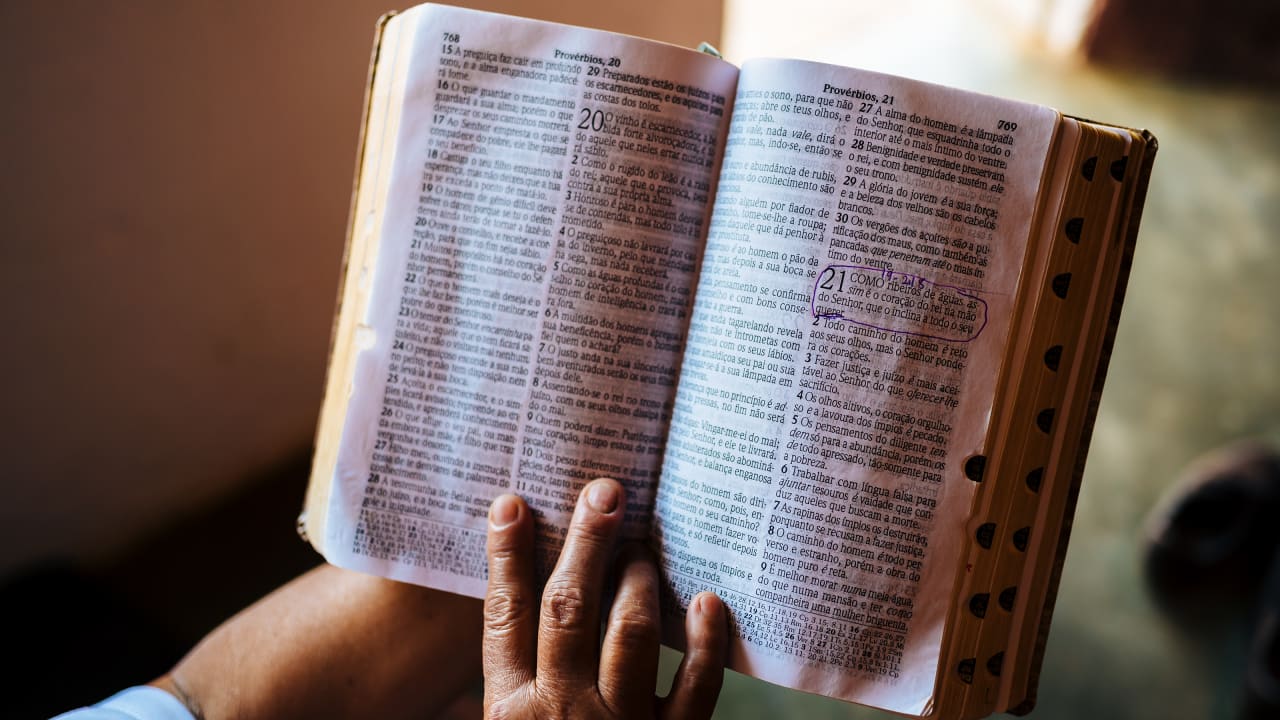 768
Provérbios, 20
15 A preguiça faz cair em profundo
sono, e a alma enganadora padece-
rá fome.
16 O que guardar o mandamento
guardará a sua alma; porém o que
desprezar os seus caminhos morrerá.
17 Ao Senhor empresta o que se
compadece do pobre, ele lhe pagará
o seu benefício.
18 Castiga o teu filho enquanto há
esperança, mas não deixes que a tua
ira se exceda a ponto de matá-lo.
19 O homem de gênio difícil deve
sofrer o dano; porque se tu o defen-
deres ainda terás de tornar a fazê-lo.
20 Ouve o conselho, e recebe a cor-
reção, para que no fim sejas sábio.
21 Muitos propósitos há no coração
do homem, porém o conselho do Se-
nhor permanecerá.
22 O que o homem mais deseja é o
que lhe faz bem; porém é melhor ser
pobre do que mentiroso.
23 O temor do Senhor encaminha pa-
ra a vida; aquele que o tem ficará sa-
tisfeito, e não o visitará mal nenhum.
24 O preguiçoso esconde a sua mão
no peito; e não tem disposição nem
de levá-la à sua boca.
25 Açoita o escarnecedor, e o sim-
ples ficará avisado; repreende ao en-
tendido, e aprenderá conhecimento.
26 O que aflige o seu pai, ou man-
da embora sua mãe, é filho que traz
vergonha e desonra.
27 Filho meu, ouvindo a instrução,
cessa de te desviares das palavras do
28 A testemunha de Belial escarnece
do juízo, e a boca dos ímpios
a iniquidade.
29 Preparados estão os juízos para
os escarnecedores, e os açoites para
as costas dos tolos.
20 O vinho é escarnecedor, a be-
bida forte alvoroçadora;
do aquele que neles errar nunca se-
rá sábio.
2 Como o rugido do leão é o terror
do rei; aquele que o provoca, peca
contra a sua própria alma.
3 Honroso é para o homem desviar-
se de contendas, mas todo tolo é in-
trometido.
4 O preguiçoso não lavrará por cau-
sa do inverno, pelo que mendigará
na sega, mas nada receberá.
5 Como as águas profundas é o con-
selho no coração do homem; mas o
homem de inteligência o tirará pa-
ra fora.
6 A multidão dos homens apregoa a
sua beneficência; porém o homem
fiel quem o achará?
7 O justo anda na sua sinceridade;
bem-aventurados serão os seus
depois dele.
8 Assentando-se o rei no trono do
juízo, com os seus olhos dissipa to-
do o mal.
9 Quem poderá dizer: Purifiquei
meu coração, limpo estou de meu
pecado?
10 Dois pesos diferentes e duas es-
pécies de medida são
Senhor, tanto um
11 Até a criança
Provérbios, 21
769
ames o sono, para que não
; abre os teus olhos, e
de pão.
Nada vale, nada vale, dirá o
dor; mas, indo-se, então se
ouro e abundância de rubis,
lábios do conhecimento são
alguém por fiador de
estranho, tome-se-lhe a roupa;
daquele que dá penhor à
prostituta.
é ao homem o pão da
mas depois a sua boca se
de areia.
pensamento se confirma
conselho e com bons conse-
a guerra.
que anda tagarelando revela
não te intrometas com
com os seus lábios.
amaldiçoa seu pai ou sua
-se-á a sua lâmpada em
herança que no princípio é ad-
às pressas, no fim não será
digas: Vingar-me-ei do mal;
Senhor, e ele te livrará.
adulterados são abominá-
Senhor, e balança enganosa
passos do homem são diri-
Senhor; como, pois, en-
o homem o seu caminho?
para o homem fazer vo-
e só refletir depois
votos.
dispersa os ímpios e
sobre eles a roda.
27 A alma do homem é a lâmpada
do Senhor, que esquadrinha todo o
interior até o mais íntimo do ventre.
28 Benignidade e verdade preservam
o rei, e com benignidade sustém ele
o seu trono.
29 A glória do jovem é a sua força;
e a beleza dos velhos são os cabelos
brancos.
30 Os vergões dos açoites são a pu-
rificação dos maus, como também as
pancadas que penetram até o mais ín-
timo do ventre.
21 COMO ribeiros de águas, as-
sim é o coração do rei na mão
do Senhor, que o inclina a todo o seu
querer.
2 Todo caminho do homem é reto
aos seus olhos, mas o Senhor ponde-
ra os corações.
3 Fazer justiça e juízo é mais acei-
tável ao Senhor do que oferecer-lhe
sacrifício.
4 Os olhos altivos, o coração orgulho-
so e a lavoura dos ímpios é pecado.
5 Os pensamentos do diligente ten-
dem só para a abundância, porém os
de todo apressado, tão-somente para
a pobreza.
6 Trabalhar com língua falsa para
ajuntar tesouros é vaidade que con-
duz aqueles que buscam a morte.
7 As rapinas dos ímpios os destruirão,
porquanto se recusam a fazer justiça.
8 O caminho do homem é todo per-
verso e estranho, porém a obra do
homem puro é reta.
9 É melhor morar numa meia-água,
do que numa mansão e ter como
companheira uma mulher briguenta.